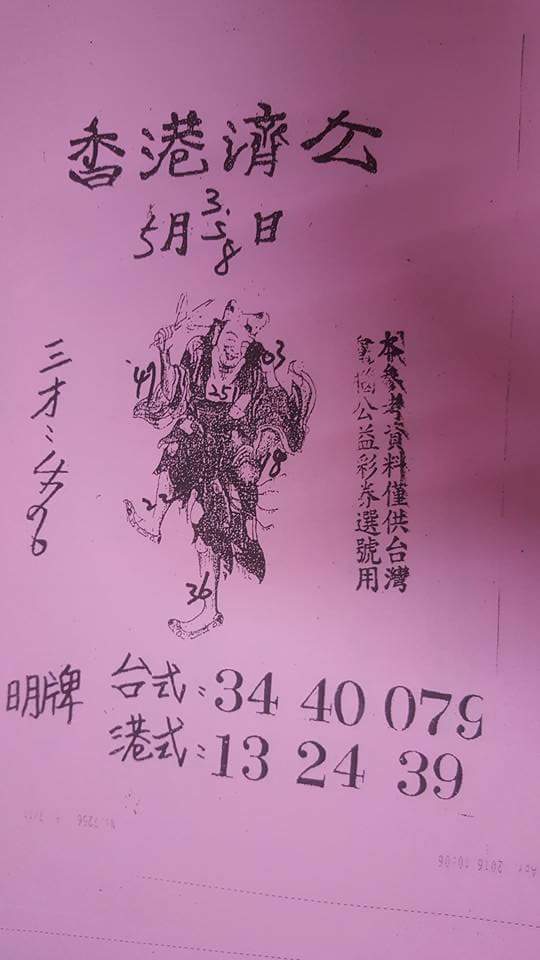 香港濟公
5月3.5.8日
本參考資料僅供台灣
公益彩券選號用
三才:
49
03
251
18
22
36
明牌
台式:34 40 079
港式:13 24 39
2016 10:06